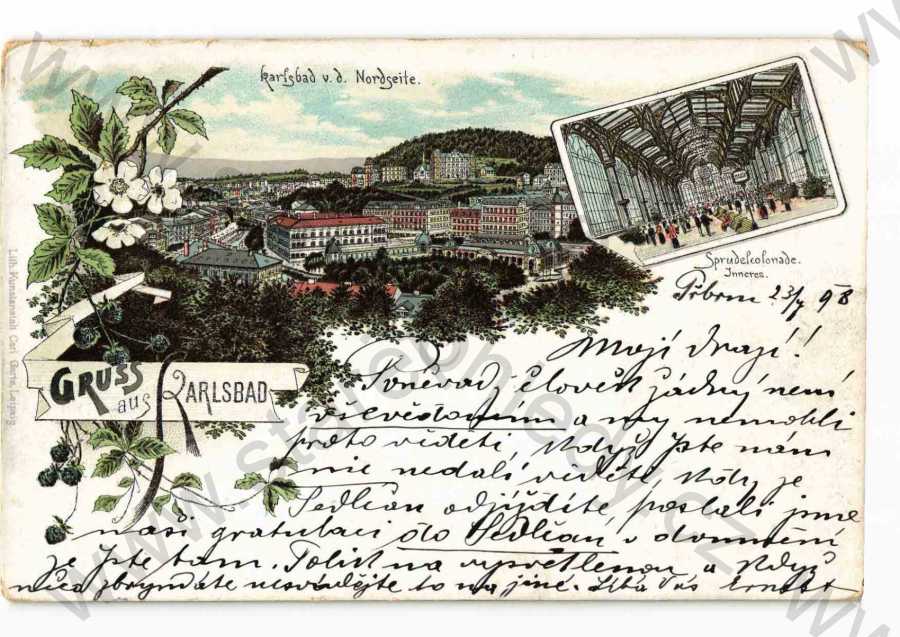 Karlsbad v. d. Nordseite.
Sprudelcolonade.
Inneres.
Gruss
aus
Karlsbad
Lith. Kunstanstalt Carl Garte, Leipzig.
23/7 98
Moji drazí!
Poněvad, člověk žádný není
vševědoucím a my nemohli
proto věděti, když Jste nám
nic nedali věděti, kdy ze
Sedlčan odjíždíte poslali jsme
naši gratulaci do Sedlčan v domnění
že Jste tam. Tolik na vysvětlenou a když
nesvádějte to na jiné. Líbá Vás Ernest
www.starepohledy.cz